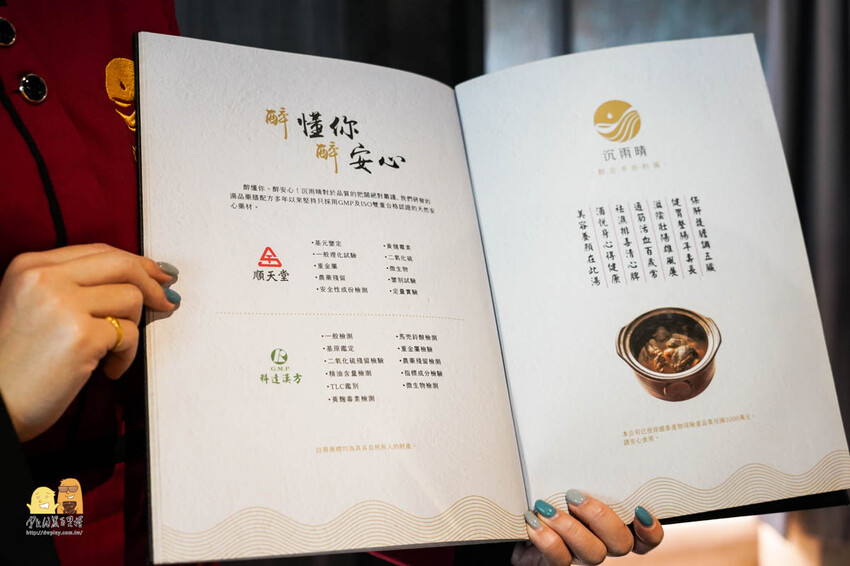 醉懂你
醉安心
醉懂你。醉安心！沉雨晴對於品質的把關絕對嚴謹，我們研發的
湯品藥膳配方多年以來堅持只採用GMP及ISO雙重合格認證的天然安
心藥材。
順天堂
•基元鑒定
•一般理化試驗
•重金屬
•農藥殘留
•安全性成份檢測
•黃麴毒素
•二氧化硫
•微生物
•鑒別試驗
•定量實驗
G.M.P
科達漢方
•一般檢測
•基原鑑定
•二氧化硫殘留檢驗
•精油含量檢測
•TLC鑑別
•黃麴毒素檢測
•馬兜鈴酸檢測
•重金屬檢驗
•農藥殘留檢測
•指標成分檢驗
•微生物檢測
註冊商標均為其各自所有人的財產。
沉雨晴
保肝護腰調五臟
健胃整腸年壽長
滋陰壯陽雄風展
通筋活血百歲常
祛濕排毒清心脾
酒悅身心得健康
美容養顏在此湯
本公司已投保國泰產物保險產品責任險2000萬元。
請安心食用。
http://dwplay.com.tw/